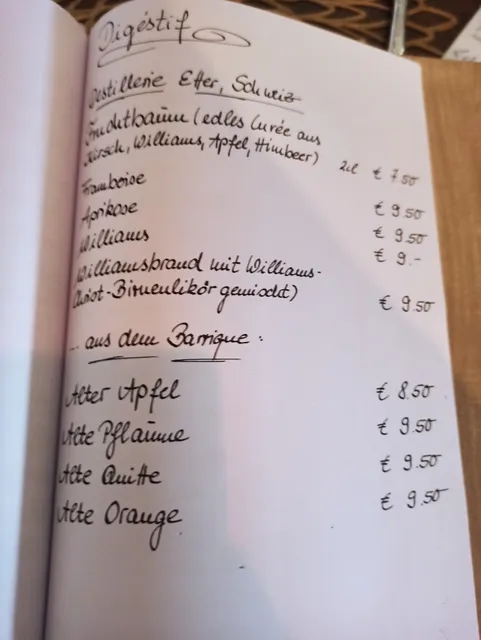 Digéstif
Destillerie Etter, Schweiz
Fruchtbaum (edles Curée aus
Kirsch, Williams, Apfel, Himbeer) 2cl € 7.50
Framboise € 9.50
Aprikose € 9.50
Williams € 9.-
Williamsbrand mit Williams-
-Birnenlikör gemischt) € 9.50
... aus dem Barrique:
Alter Apfel € 8.50
Alte Pflaume € 9.50
Alte Quitte € 9.50
Alte Orange € 9.50